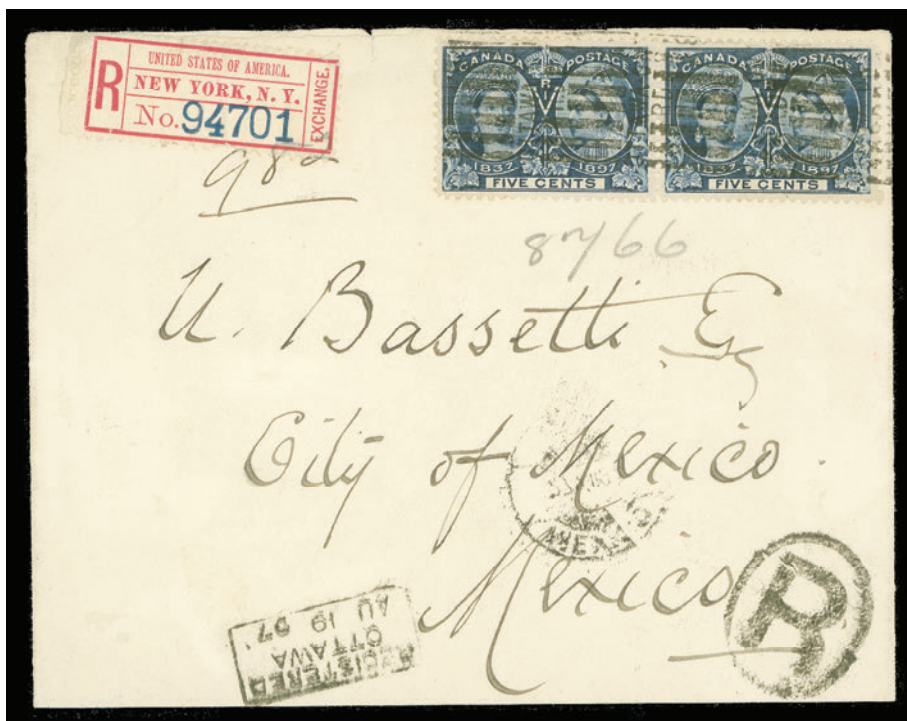 UNITED STATES OF AMERICA.
R NEW YORK, N. Y.
No. 94701
EXCHANGE.
CANADA POSTAGE
1837 1897
FIVE CENTS
CANADA POSTAGE
1837 1897
FIVE CENTS
87166
U. Bassetti Esq
City of Mexico.
Mexico
REGISTERED
OTTAWA
AU 19 97
R